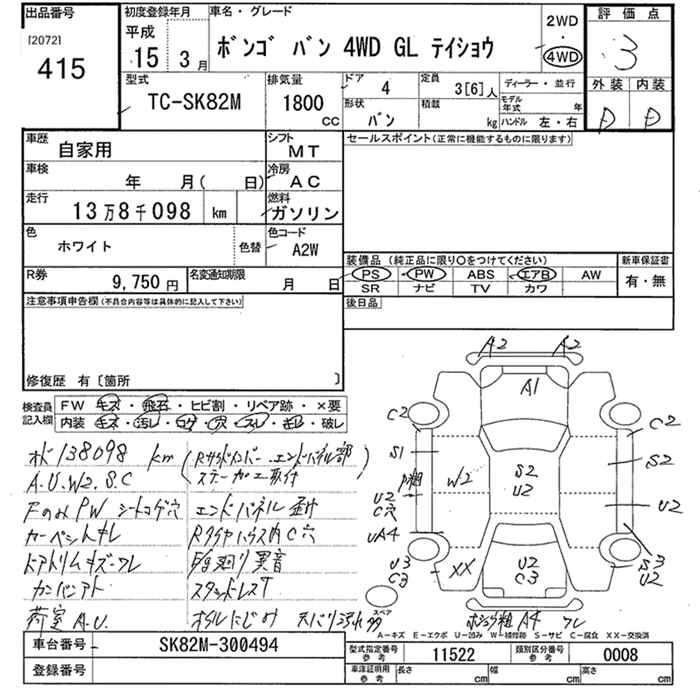 出品番号
[2072]
415
初度登録年月
平成
15 3月
車名・グレード
ボンゴ バン 4WD GL テイショウ
2WD
・
4WD
評価点
3
外装 内装
D D
型式
TC-SK82M
排気量
1800
CC
ドア
4
定員
3[6]人
ディーラー・並行
形状
バン
積載
kg
モデル年式 年
ハンドル 左・右
車歴
自家用
シフト
MT
車検
年 月( 日)
冷房
AC
走行
13万8千098 km
燃料
ガソリン
色
ホワイト
色替
色コード
A2W
R券
9,750円
名変通知期限
月 日
セールスポイント(正常に機能するものに限ります)
装備品 (純正品に限り○をつけてください)
PS PW ABS エアB AW
SR ナビ TV カワ
新車保証書
有・無
後日品
注意事項申告欄(不具合内容等は具体的に記入して下さい)
修復歴 有〔箇所 〕
検査員
記入欄
FW キズ・飛石・ヒビ割・リペア跡・×要
内装 キズ・汚レ・コゲ・穴・スレ・キレ・破レ
メ 138098 km
A.U.W2.S.C
FのみPW シートコゲ穴
カーペットキレ
ドアトリムキズ・ワレ
荷室 A.U.
ステー加工取付
エンドパネル
RタイヤハウスC穴
異音
スタッドレスT
A2 A2
A1
C2 C2
S1 S2
W2
S2
U2
U2
C穴
U2
UA4
U3
C3
XX
U2
C3
S3
U2
スペア
A4 ワレ
A-キズ E-エクボ U-凹み W-補修跡 S-サビ C-腐食 XX-交換済
車台番号
SK82M-300494
登録番号
型式指定番号
参考
11522
類別区分番号
参考
0008
車庫証明用
参考
長さ cm
幅 cm
高さ cm